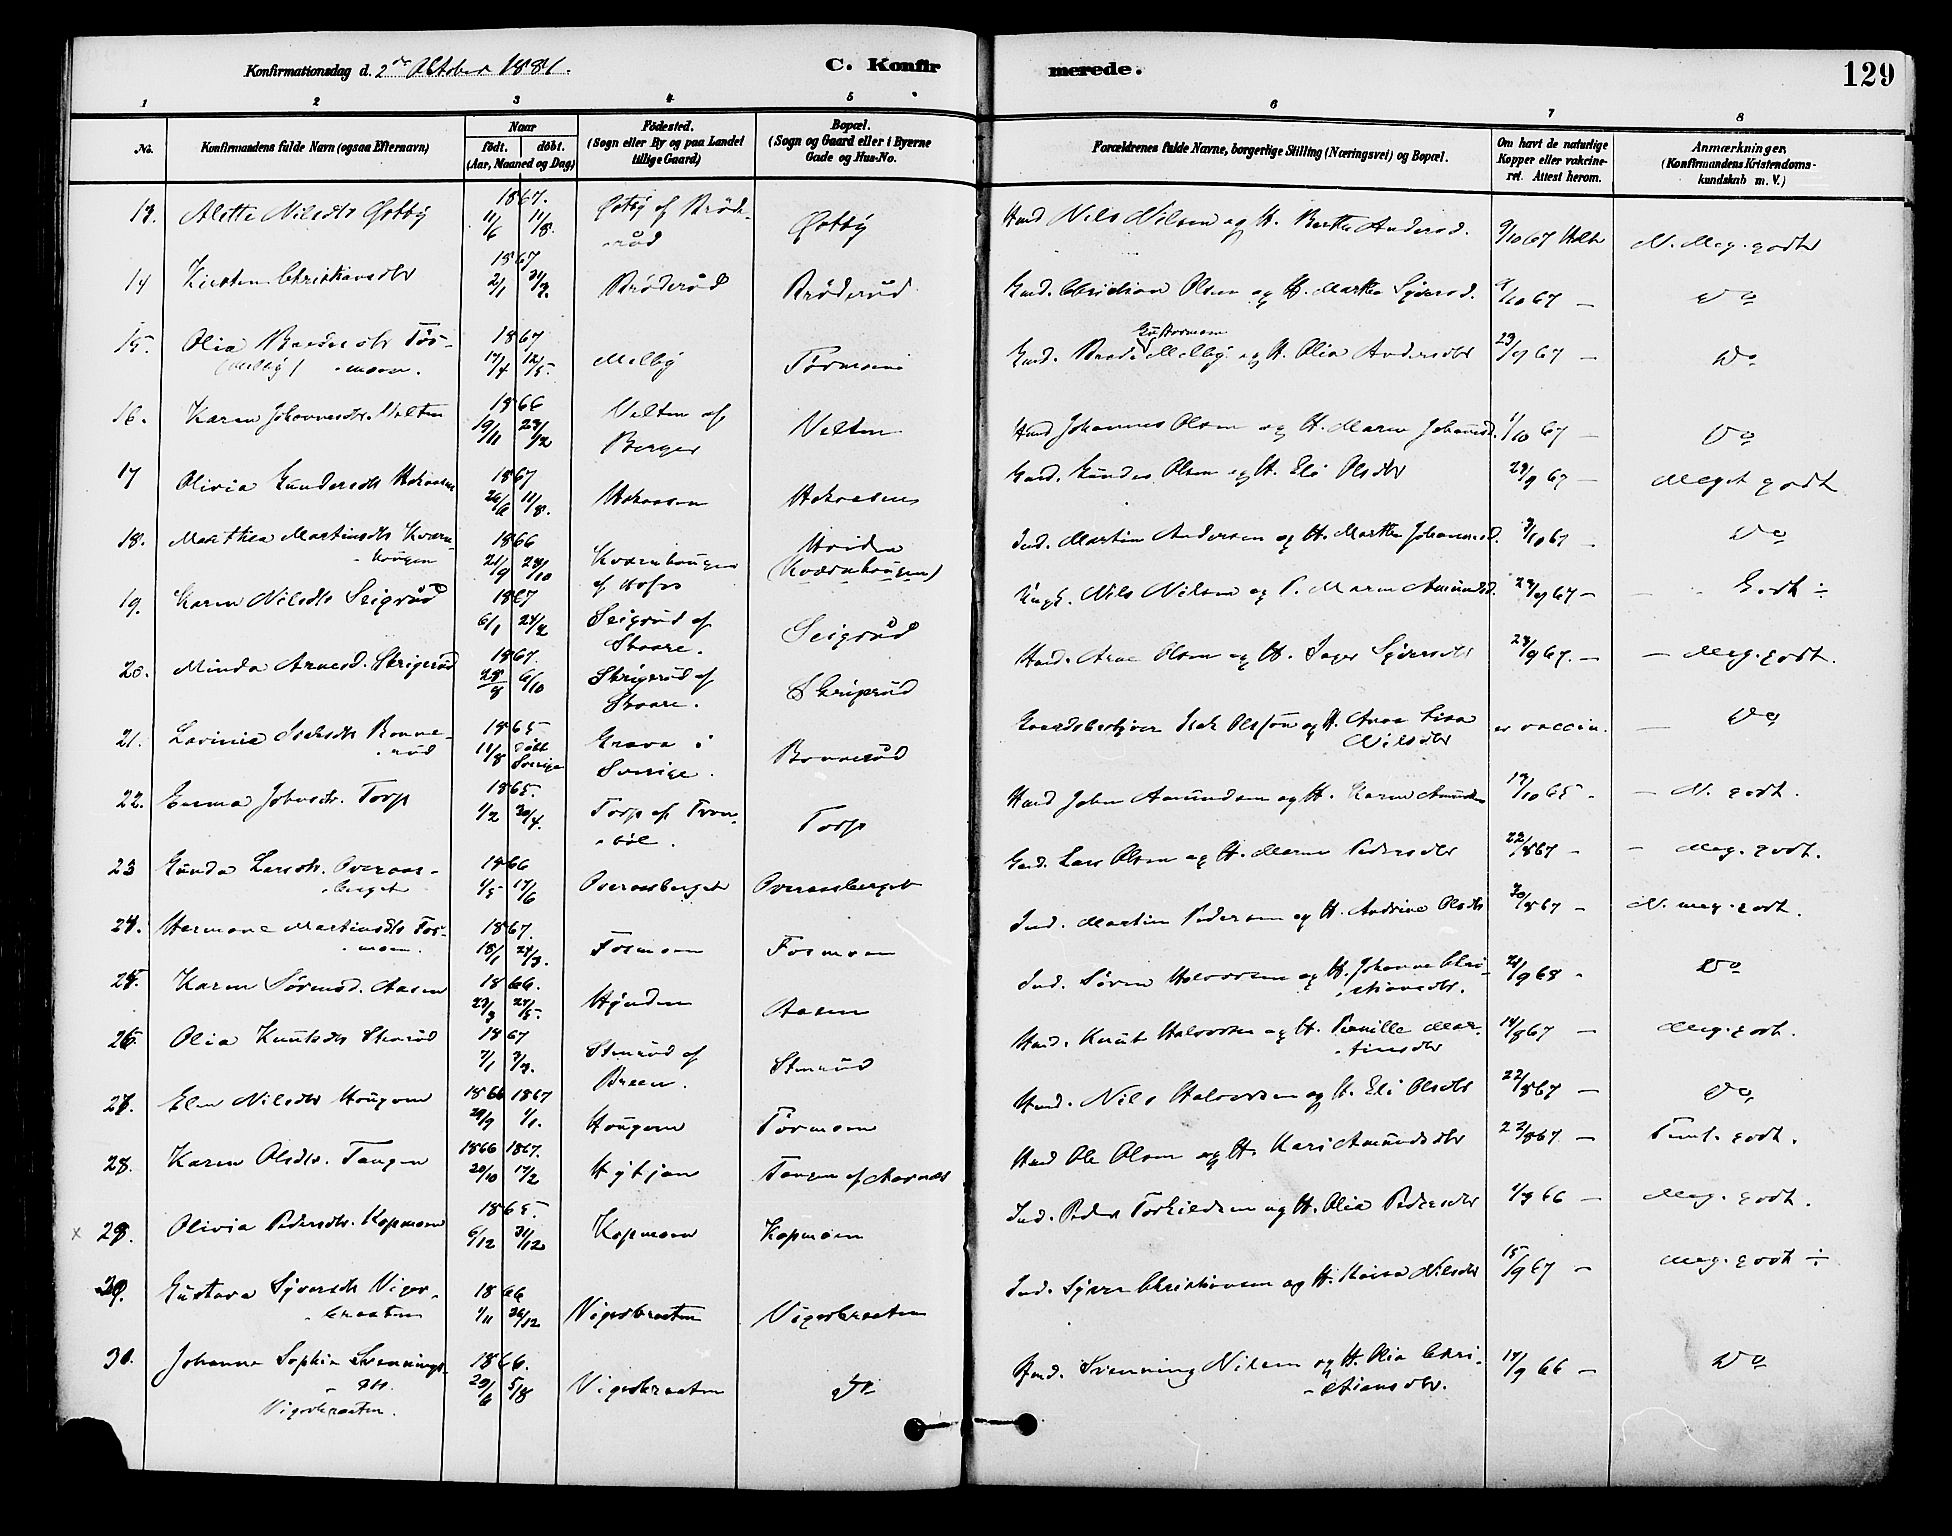 Konfirmationsdag d. 2den Oktober 1881.
C. Konfirmerede.
129
1 2 3 4 5 6 7 8
No.
Konfirmandens fulde Navn (ogsaa Efternavn)
Naar
født. døbt.
(Aar, Maaned og Dag)
Fødested.
(Sogn eller By og paa Landet
tillige Gaard)
Bopæl.
(Sogn og Gaard eller i Byerne
Gade og Hus-No.
Forældrenes fulde Navne, borgerlige Stilling (Næringsvei) og Bopæl.
Om havt de naturlige
Kopper eller vakcine-
ret. Attest herom.
Anmærkninger.
(Konfirmandens Kristendoms-
kundskab m. V.)
13. Alette Nilsdtr Østby 1867. 11/6 11/8. Østby af Brøde-
rud Østby Husmd Nils Nilsen og H. Berthe Andersd. 9/10 67 N. Meg. godt
14 Kirsten Christiansdtr 1867 2/1 Brøderud Brøderud Gmd. Christian Olsen og H. Marthe Syversd. /10 67 — Do
15. Olia Bredesdtr Tos-
(Melby) moen. 1867 17/4 12/5. Melby Tosmoen Gmd. Brede Melby og H. Olia Andersdtr 23/9 67 — Do
16. Karen Johannesdtr. Velten 1866 19/11 Velten af
Berger Velten Husmd Johannes Olsen og H. Maren Johannesd. 1/10 67 — Do
17 Olivia Gundersdtr Hokaasen 1867 26/6 11/8. Hokaasen Hokaasen Gmd. Gunder Olsen og H. Eli Olsdtr 29/9 67 — Meget godt
18. Marthea Martinsdtr Kværn-
hougen 1866 21/9 28/10 Kværnhougen
af Hofos
(Kværnhougen) Ind. Martin Andersen og H. Marthe Johannesd. 3/10 67 — Do
19. Karen Nilsdtr Seigrud 1867 6/1 24/2 Seigrud af
Skaare. Seigrud Nils Nilsen og P. Maren Amundsd. 9 67 — Godt ÷
20. Minda Arnesd. Skrigerud 1867. 28/8 6/10 Skrigerud af
Skaare. Skrigerud Husd. Arne Olsen og H. Inger Syversdtr 9 67. — Meg. godt.
21. Lavinia Isaksdtr Bonne-
rud 1865 11/8 døbt
Sverige Grava i
Sverige. Bonnerud Gaardsbestyrer Isak Olsson og H. Anna Lisa
Nilsdtr er vaccin. — Do
22. Emma Johnsdtr. Torp 1865. 1/2 30/4. Torp af Tron-
bøl. Torp Husd John Amundsen og H. Karen Amundsdtr 19/10 65 — N. godt.
23 Gunda Larsdtr. Overaas-
berget 1866 1/5 17/6 Overaasberget Overaasberget Gmd. Lars Olsen og H. Maren Pedersdtr 22/8 67 — Meg. godt.
24. Hermana Martinsdtr Tos-
moen. 1867. 18/1 24/3. Tosmoen Tosmoen Ind. Martin Pedersen og H. Andrine Olsdtr 30/8 67 — N. meg. godt.
25. Karen Sørensd. Aasen 1866. Hynden Aasen Ind. Søren Halvorsen og H. Johanne Chri-
stiansdtr. 9 68 Do
26. Olia Knutsdtr Stenrud 1867 7/1 Stenrud af
Breen. Stenrud Husd. Knut Halvorsen og H. Pernille Mar-
tinsdtr 14/8 67 — Meg. godt.
27. Elen Nilsdtr Hougen 1866 1867 29/9 1/1. Hougen Tosmoen Husd. Nils Halvorsen og H. Eli Olsdtr 22/8 67 — Do
28. Karen Olsdtr. Tangen 1866 1867. 20/10 17/2 Tangen af Aarnæs Husd Ole Olsen og H. Kari Amundsdtr 22/8 67 — Teml. godt.
x 29. Olivia Pedersdtr. Kopmoen 1865. 6/12 31/12 Kopmoen Kopmoen Ind. Peder Torkildsen og H. Olia Pedersdtr 66 — Meg. godt.
Gustava Syversdtr Viger-
braaten 1866 1/11 26/12 Vigersbraaten Vigersbraaten Ind. Syver Christiansen og H. Kaisa Nilsdtr 15/9 67 — Meg. godt ÷
Johanne Sophie Svennings-
dtr.
Vigersbraaten. 1866. 29/6 5/8 Vigersbraaten Do Svenning Nilsen og H. Olia Chri-
stiansdtr. 9 66 — Do